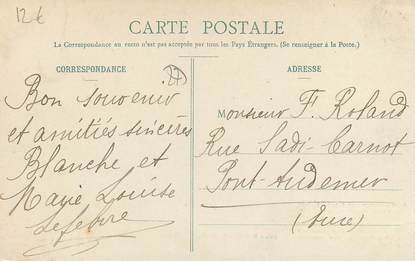 12€
CARTE POSTALE
La Correspondance au recto n'est pas acceptée par tous les Pays Étrangers. (Se renseigner à la Poste.)
CORRESPONDANCE
Bon souvenir
et amitiés sincères
Blanche et
Marie Louise
Lefebvre
ADRESSE
Monsieur F. Roland
Rue Sadi-Carnot
Pont-Audemer
(Eure)